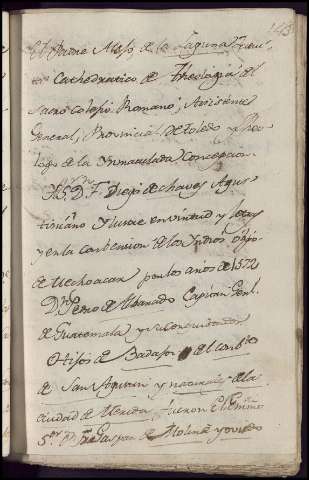 143
El Padre Alfo. de la Laguna
Cathedratico de Theologia del
Sacro Colegio Romano; Assistente
General, Provincial de Toledo y Theo
logo de la Ynmaculada Concepcion.
D. F. Diego de Chaves Agus
tiniano Ylustre en virtud y letras
y en la conbersion de los Yndios obispo
de Mechoacan por los años de 1572
Dn. Pedro de Albarado Capitan Genl.
de Guatemala y su conquistador
Otisos de Badajoz del conbto.
de San Agustin y naturales de la
ciudad de Merida fueron El Emmo.
Sor. D. Gaspar de Molina y oviedo